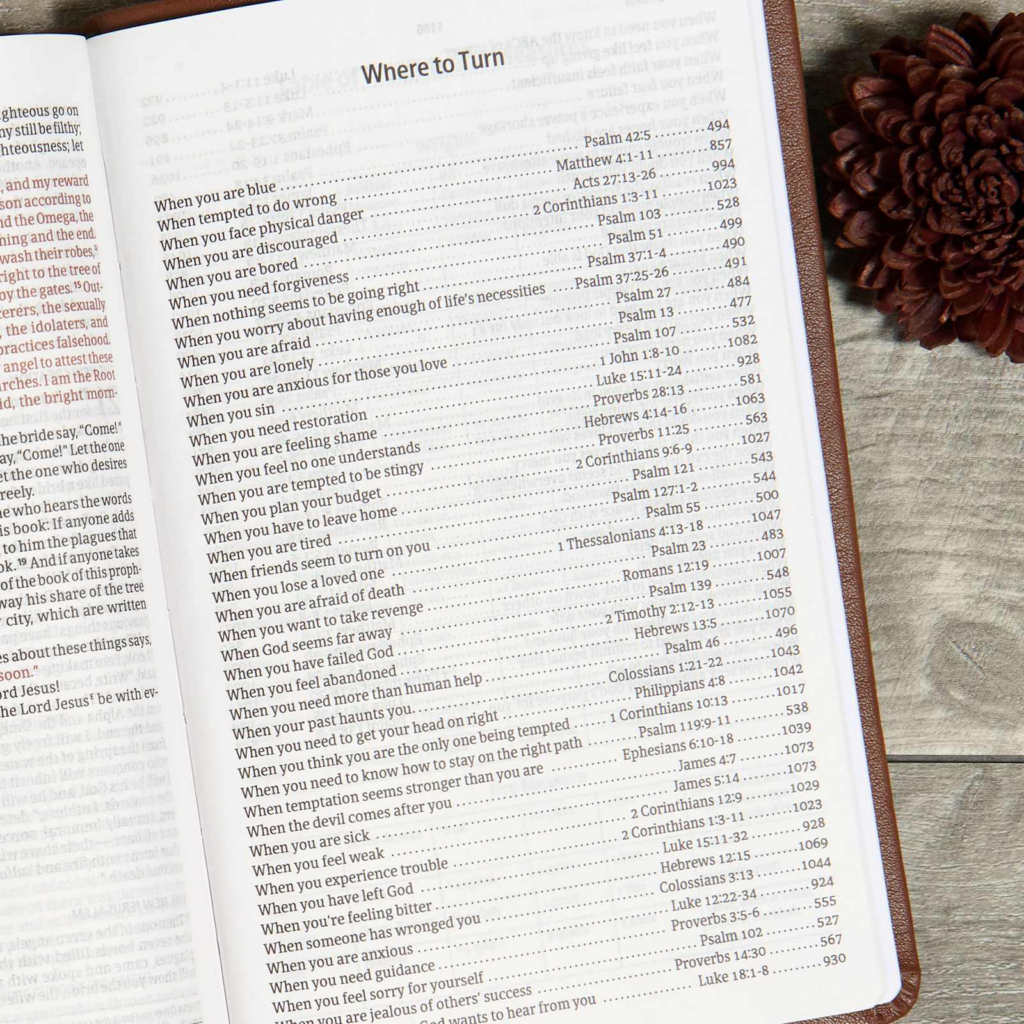 ghteous go on
ny still be filthy;
ghteousness; let
, and my reward
son according to
nd the Omega, the
ning and the end.
wash their robes,
right to the tree of
by the gates. 15 Out-
cerers, the sexually
, the idolaters, and
practices falsehood.
angel to attest these
rches. I am the Root
id, the bright morn-
he bride say, "Come!"
ay, "Come!" Let the one
et the one who desires
reely.
e who hears the words
is book: If anyone adds
to him the plagues that
ok. 19 And if anyone takes
of the book of this proph-
way his share of the tree
city, which are written
es about these things says,
soon."
ord Jesus!
he Lord Jesus be with ev-
Where to Turn
When you are blue Psalm 42:5 494
When tempted to do wrong Matthew 4:1-11 857
When you face physical danger Acts 27:13-26 994
When you are discouraged 2 Corinthians 1:3-11 1023
When you are bored Psalm 103 528
When you need forgiveness Psalm 51 499
When nothing seems to be going right Psalm 37:1-4 490
When you worry about having enough of life's necessities Psalm 37:25-26 491
When you are afraid Psalm 27 484
When you are lonely Psalm 13 477
When you are anxious for those you love Psalm 107 532
When you sin 1 John 1:8-10 1082
When you need restoration Luke 15:11-24 928
When you are feeling shame Proverbs 28:13 581
When you feel no one understands Hebrews 4:14-16 1063
When you are tempted to be stingy Proverbs 11:25 563
When you plan your budget 2 Corinthians 9:6-9 1027
When you have to leave home Psalm 121 543
When you are tired Psalm 127:1-2 544
When friends seem to turn on you Psalm 55 500
When you lose a loved one 1 Thessalonians 4:13-18 1047
When you are afraid of death Psalm 23 483
When you want to take revenge Romans 12:19 1007
When God seems far away Psalm 139 548
When you have failed God 2 Timothy 2:12-13 1055
When you feel abandoned Hebrews 13:5 1070
When you need more than human help Psalm 46 496
When your past haunts you Colossians 1:21-22 1043
When you need to get your head on right Philippians 4:8 1042
When you think you are the only one being tempted 1 Corinthians 10:13 1017
When you need to know how to stay on the right path Psalm 119:9-11 538
When temptation seems stronger than you are Ephesians 6:10-18 1039
When the devil comes after you James 4:7 1073
When you are sick James 5:14 1073
When you feel weak 2 Corinthians 12:9 1029
When you experience trouble 2 Corinthians 1:3-11 1023
When you have left God Luke 15:11-32 928
When you're feeling bitter Hebrews 12:15 1069
When someone has wronged you Colossians 3:13 1044
When you are anxious Luke 12:22-34 924
When you need guidance Proverbs 3:5-6 555
When you feel sorry for yourself Psalm 102 527
When you are jealous of others' success Proverbs 14:30 567
God wants to hear from you Luke 18:1-8 930